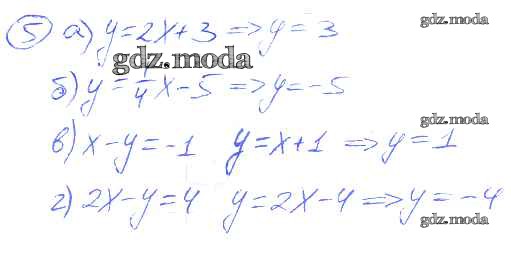 ⑤ а) y=2x+3 => y=3
gdz.moda
gdz.moda
б) y=1/4x-5 => y=-5
gdz.moda
в) x-y=-1 y=x+1 => y=1
г) 2x-y=4 y=2x-4 => y=-4
gdz.moda